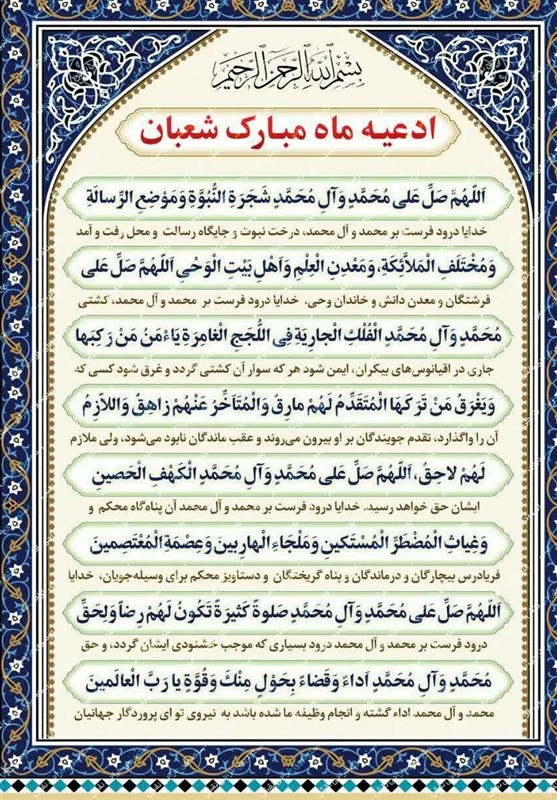 بسم الله الرحمن الرحیم
ادعیه ماه مبارک شعبان
اَللّهُمَّ صَلِّ عَلی مُحَمَّدٍ وَآلِ مُحَمَّدٍ شَجَرَةِ النُّبُوَّةِ وَمَوْضِعِ الرِّسالَةِ
خدایا درود فرست بر محمد و آل محمد، درخت نبوت و جایگاه رسالت و محل رفت و آمد
وَمُخْتَلَفِ الْمَلاَّئِكَةِ، وَمَعْدِنِ الْعِلْمِ وَاَهْلِ بَیْتِ الْوَحْیِ اَللّهُمَّ صَلِّ عَلی
فرشتگان و معدن دانش و خاندان وحی. خدایا درود فرست بر محمد و آل محمد، کشتی
مُحَمَّدٍ وَآلِ مُحَمَّدٍ الْفُلْكِ الْجارِیَةِ فِی اللُّجَجِ الْغامِرَةِ یَاءْمَنُ مَنْ رَكِبَها
جاری در اقیانوس‌های بیکران، ایمن شود هر که سوار آن کشتی گردد و غرق شود کسی که
وَیَغْرَقُ مَنْ تَرَكَهَا الْمُتَقَدِّمُ لَهُمْ مارِقٌ وَالْمُتَاَخِّرُ عَنْهُمْ زاهِقٌ وَاللاّزِمُ
آن را واگذارد، تقدم جویندگان بر او بیرون می‌روند و عقب ماندگان نابود می‌شود، ولی ملازم
لَهُمْ لاحِقٌ، اَللّهُمَّ صَلِّ عَلی مُحَمَّدٍ وَآلِ مُحَمَّدٍ الْكَهْفِ الْحَصینِ
ایشان حق خواهد رسید. خدایا درود فرست بر محمد و آل محمد آن پناه‌گاه محکم و
وَغِیاثِ الْمُضْطَرِّ الْمُسْتَكینِ وَمَلْجَاءِ الْهارِبینَ وَعِصْمَةِ الْمُعْتَصِمینَ
فریادرس بیچارگان و درماندگان و پناه گریختگان و دستاویز محکم برای وسیله‌جویان، خدایا
اَللّهُمَّ صَلِّ عَلی مُحَمَّدٍ وَآلِ مُحَمَّدٍ صَلوةً كَثیرَةً تَكُونُ لَهُمْ رِضاً وَلِحَقِّ
درود فرست بر محمد و آل محمد درود بسیاری که موجب خشنودی ایشان گردد، و حق
مُحَمَّدٍ وَآلِ مُحَمَّدٍ اَداءً وَقَضاءً بِحَوْلٍ مِنْكَ وَقُوَّةٍ یا رَبَّ الْعالَمینَ
محمد و آل محمد اداء گشته و انجام وظیفه ما شده باشد به نیروی تو ای پروردگار جهانیان